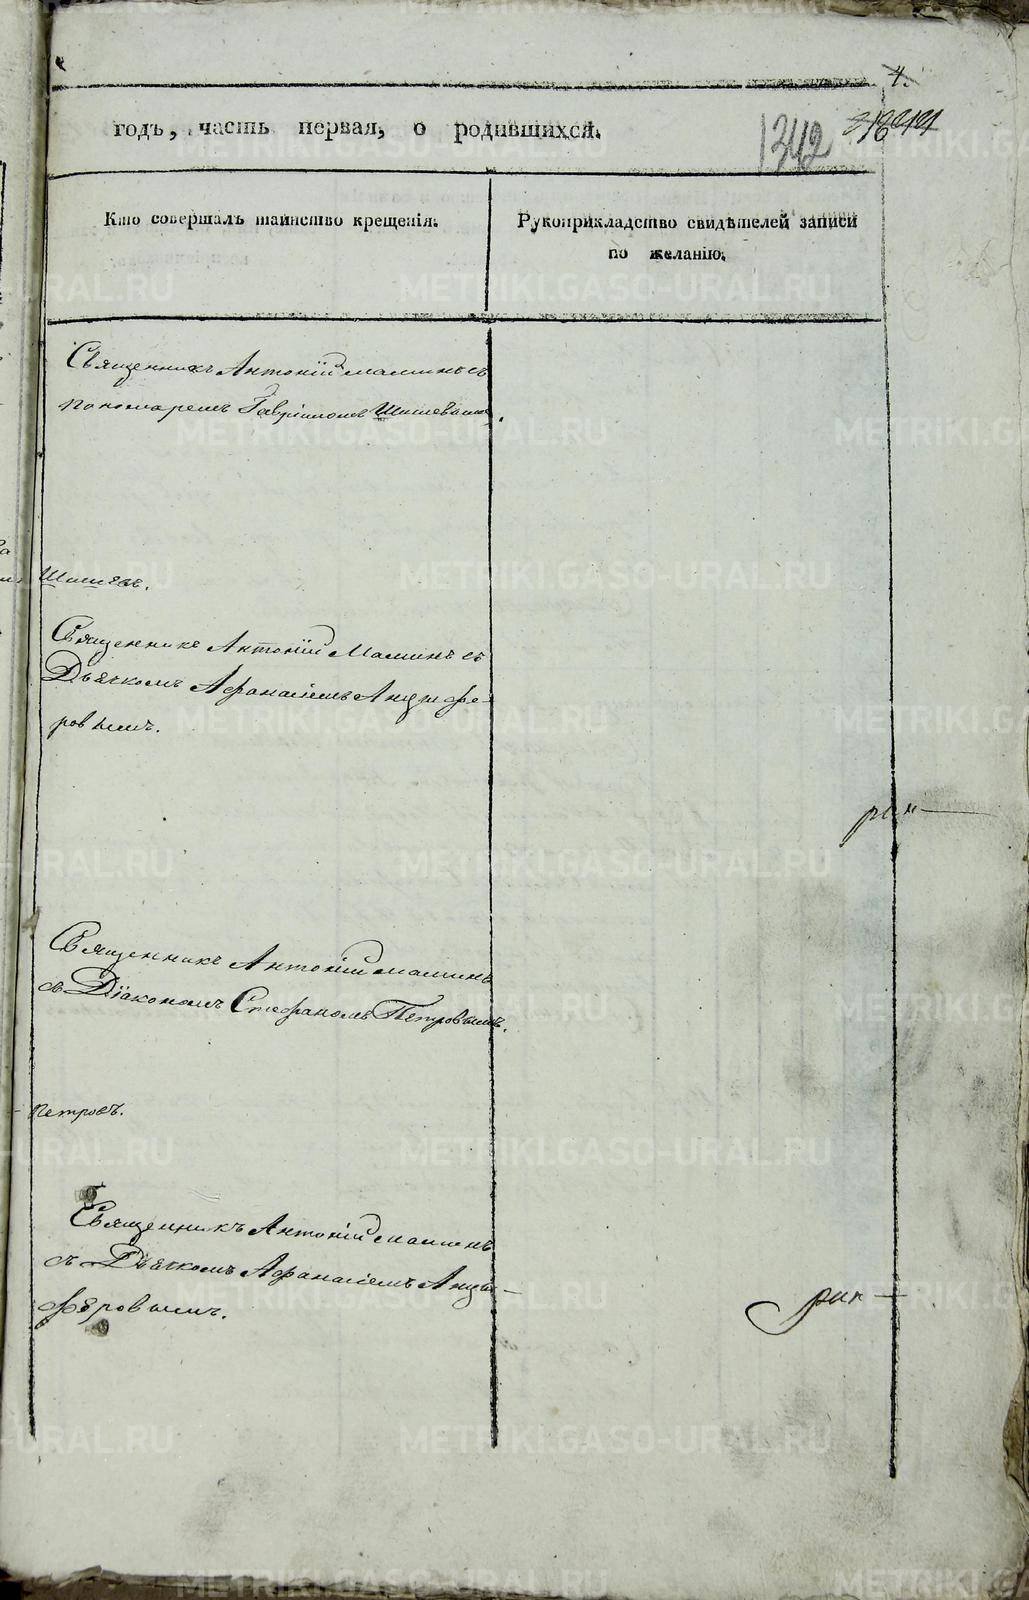 4.
годъ, часть первая, о родившихся.
1342
Кто совершалъ таинство крещенія.
Рукоприкладство свидѣтелей записи
по желанію.
Священникъ Антоній Маминъ съ
пономаремъ Гавріиломъ Шишевымъ.
Шишевъ.
Священникъ Антоній Маминъ съ
Дьячкомъ Афанасіемъ Анцыфе-
ровымъ.
Священникъ Антоній Маминъ
съ Діакономъ Стефаномъ Петровымъ.
Петровъ.
Священникъ Антоній Маминъ
съ Дьячкомъ Афанасіемъ Анцы-
феровымъ.
METRIKI.GASO-URAL.RU